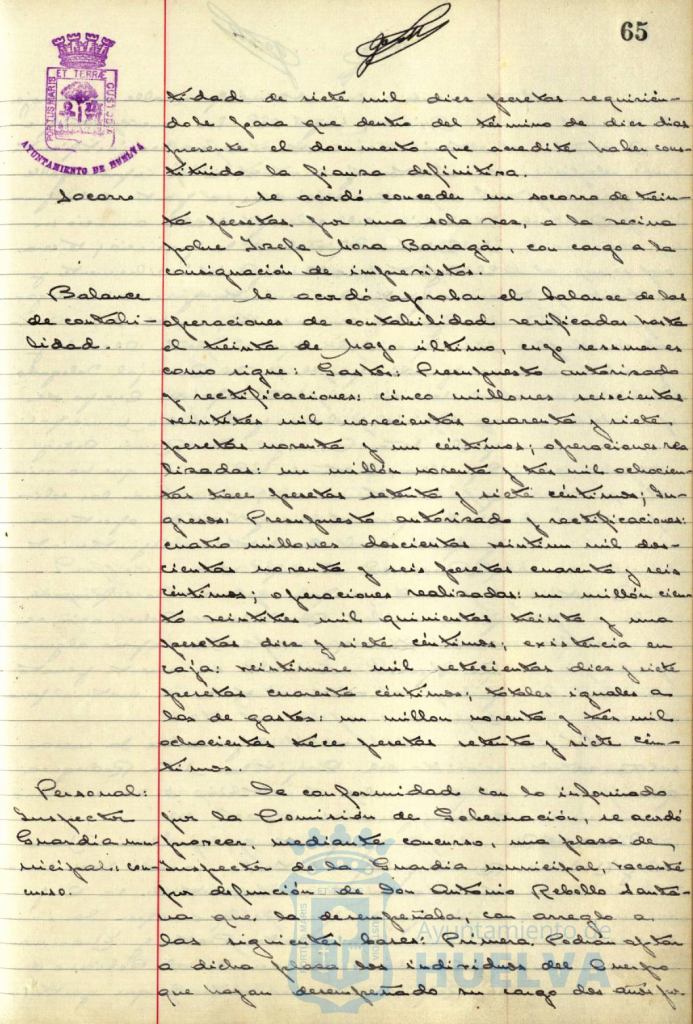 65
PORTUS MARIS ET TERRÆ CUSTODIA
AYUNTAMIENTO DE HUELVA
tidad de siete mil diez pesetas requirién-
dole para que dentro del término de diez días
presente el documento que acredite haber cons-
tituido la fianza definitiva.
Socorro
Se acordó conceder un socorro de trein-
ta pesetas, por una sola vez, a la vecina
pobre Josefa Mora Barragán, con cargo a la
consignación de imprevistos.
Balance
de contabi-
lidad.
Se acordó aprobar el balance de las
operaciones de contabilidad verificadas hasta
el treinta de Mayo último, cuyo resumen es
como sigue: Gastos: Presupuesto autorizado
y rectificaciones: cinco millones seiscientas
veintitres mil novecientas cuarenta y siete
pesetas noventa y un céntimos; operaciones rea-
lizadas: un millón noventa y tres mil ochocien-
tas trece pesetas setenta y siete céntimos; In-
gresos: Presupuesto autorizado y rectificaciones:
cuatro millones doscientas veintiun mil dos-
cientas noventa y seis pesetas cuarenta y seis
céntimos; operaciones realizadas: un millón cien-
to veintitres mil quinientas treinta y una
pesetas diez y siete céntimos; existencia en
caja: veintinueve mil setecientas diez y siete
pesetas cuarenta céntimos; totales iguales a
los de gastos: un millon noventa y tres mil
ochocientas trece pesetas setenta y siete cén-
timos.
Personal:
Inspector
Guardia mu-
nicipal: con-
curso.
De conformidad con lo informado
por la Comisión de Gobernación, se acordó
proveer, mediante concurso, una plaza de
Inspector de la Guardia municipal, vacante
por defunción de Don Antonio Rebollo Santa-
na que la desempeñaba, con arreglo a
las siguientes bases: Primera. Podrán optar
a dicha plaza los individuos del Cuerpo
que hayan desempeñado su cargo dos años por
Ayuntamiento de
HUELVA